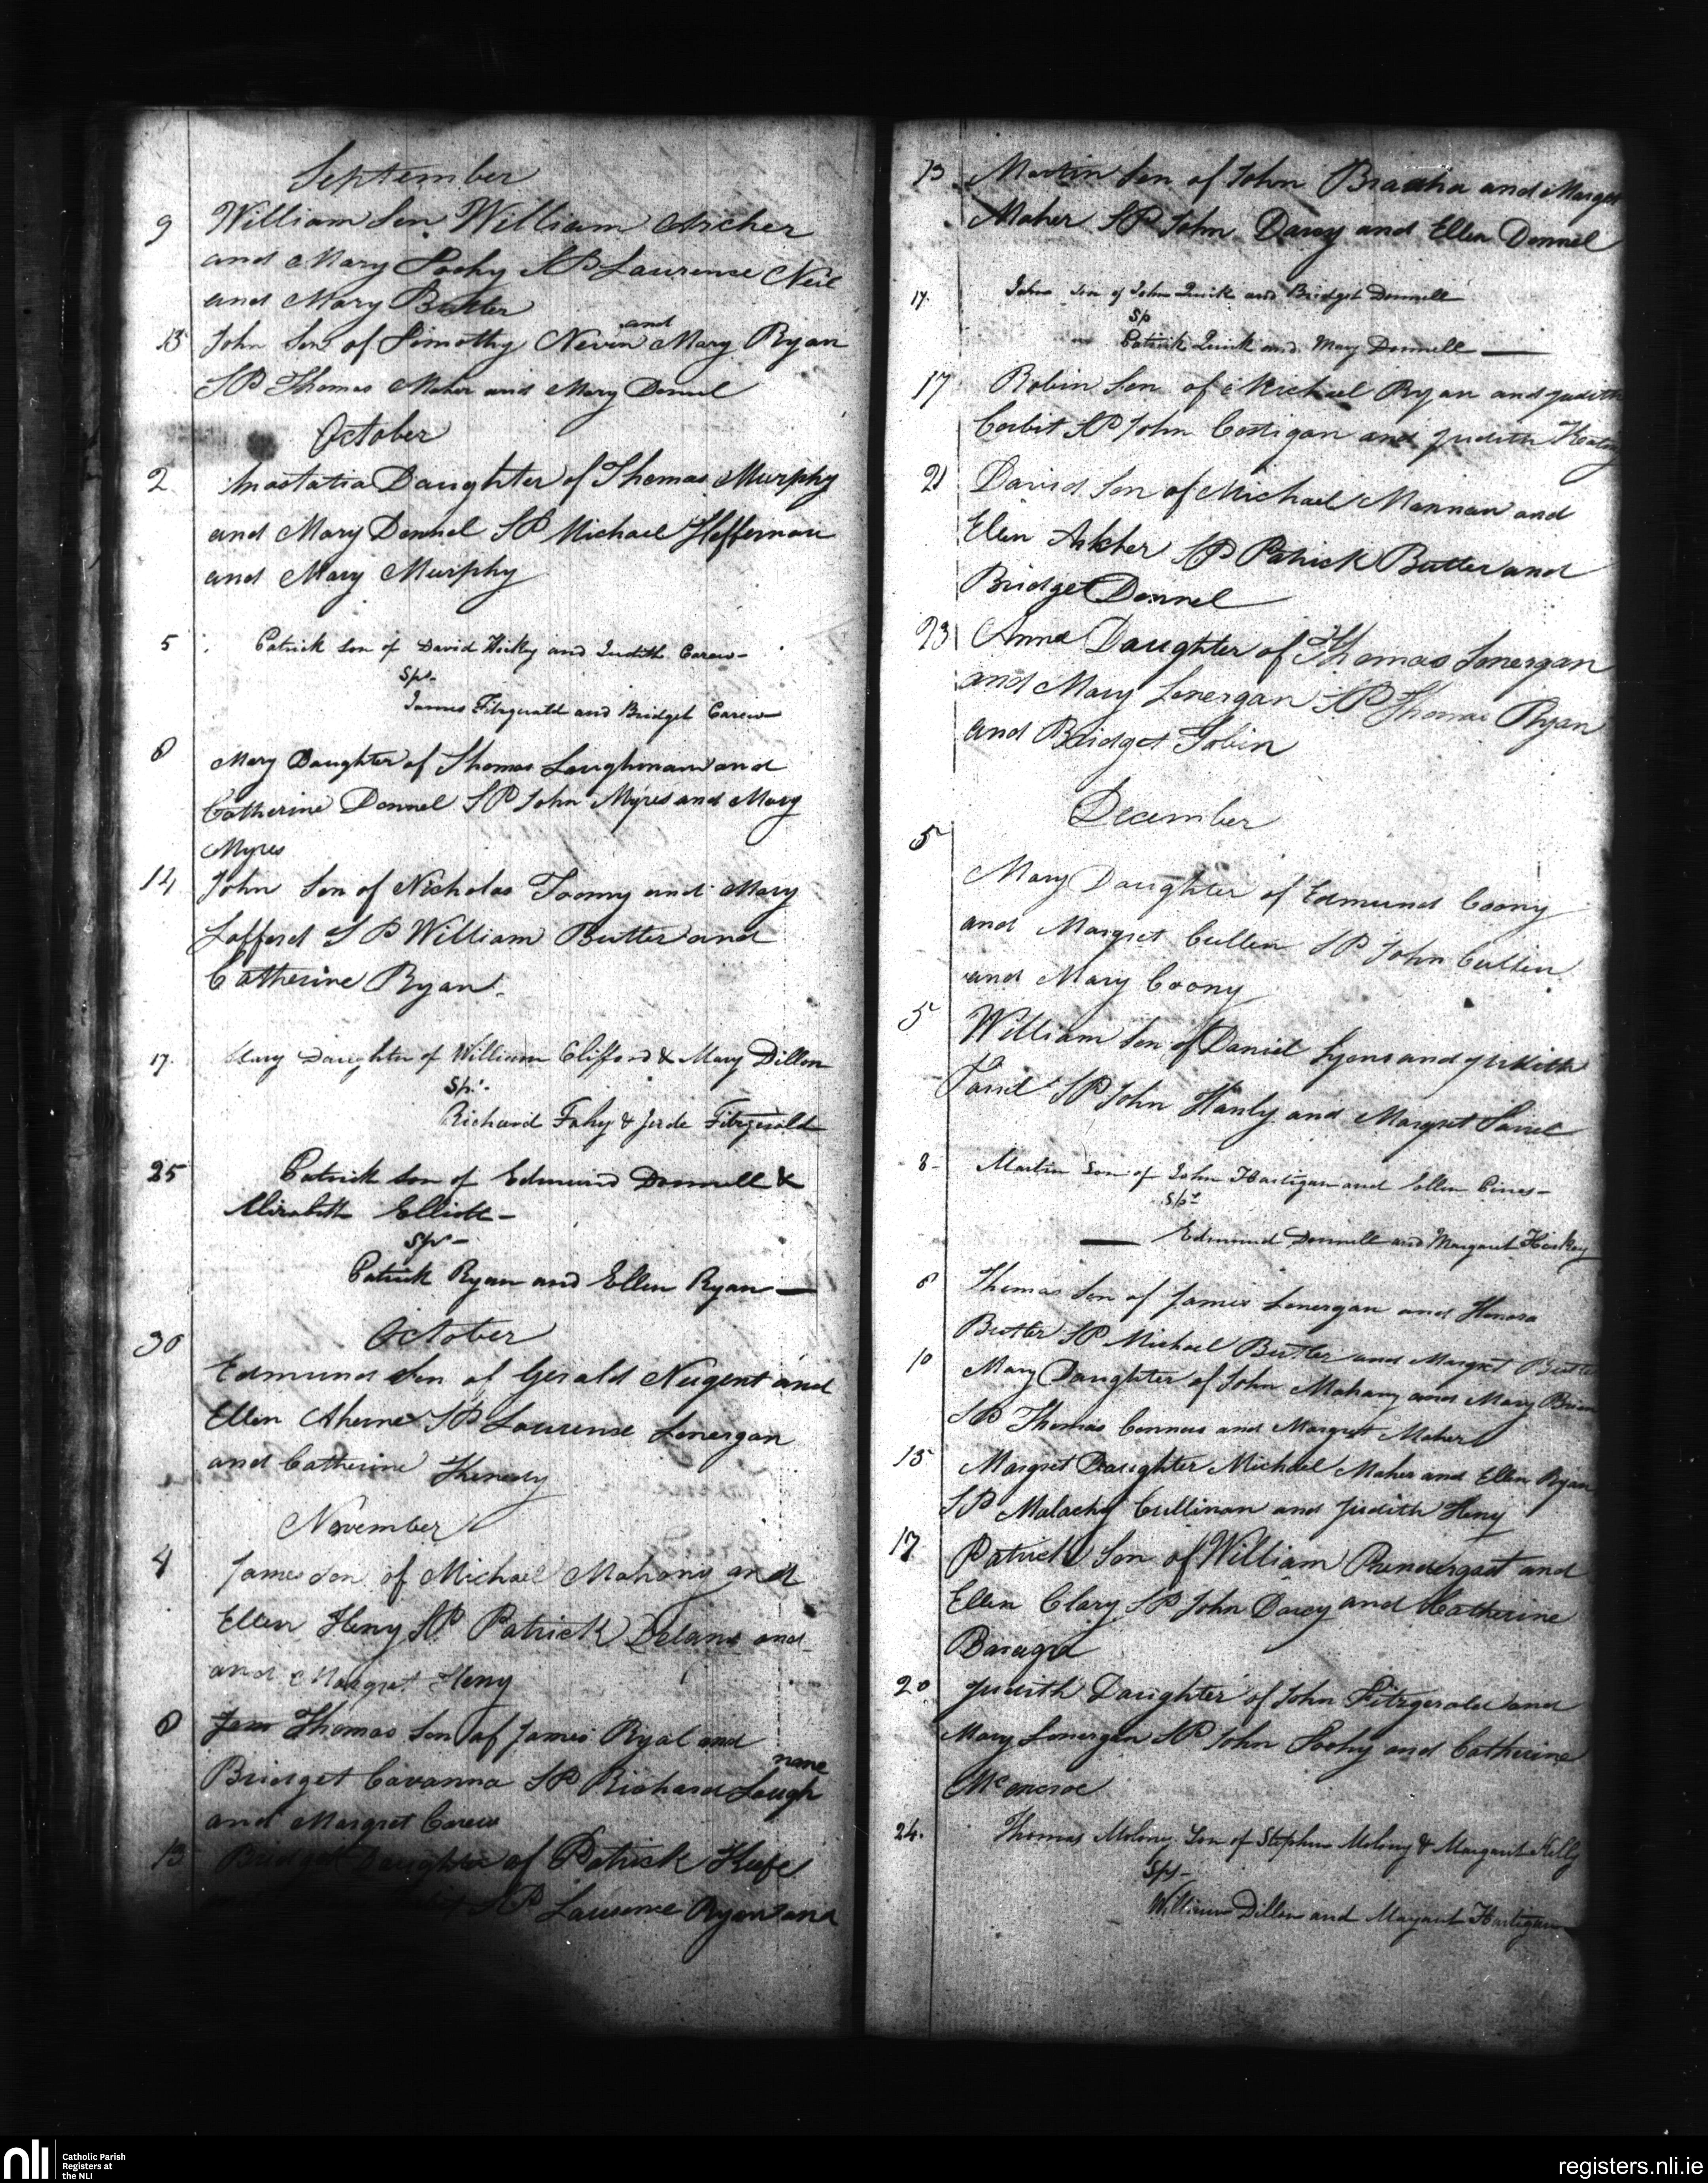 September
9 William Son William Archer
and Mary Foohy SP Laurence Neil
and Mary Butler
13 John Son of Timothy Nevin and Mary Ryan
SP Thomas Maher and Mary Donnel
October
2 Anastatia Daughter of Thomas Murphy
and Mary Donnel SP Michael Heffernan
and Mary Murphy
5 Patrick Son of David Hickey and Judith Carew-
Sps-
James Fitzgerald and Bridget Carew
8 Mary Daughter of Thomas Loughman and
Catherine Donnel SP John Myres and Mary
Myres
14 John Son of Nicholas Toomy and Mary
Lafford SP William Butler and
Catherine Ryan
17. Mary Daughter of William Clifford & Mary Dillon
Sps-
Richard Fahy & Fitzgerald
25 Patrick Son of Edmund Donnell &
Elizabeth Elliott-
Sps-
Patrick Ryan and Ellen Ryan —
October
30
Edmund Son of Gerald Nugent and
Ellen Aherne SP Laurence Lonergan
and Catherine Kenedy
November
4 James Son of Michael Mahony and
Ellen Heny SP Patrick Delany and
and Margret Heny
8 Thomas Son of James Ryal and
Bridget Cavanna SP Richard Loughnane
and Margret Carew
13 Bridget Daughter of Patrick Keefe
SP Laurence Ryan and
13 Martin Son of John and Margret
Maher SP John Darcy and Ellen Donnel
17. John Son of John Quirk and Bridget Donnell
Sp
Patrick Quirk and Mary Donnell —
17 Robin Son of Michael Ryan and Judith
Corbit SP John Costigan and Judith Keating
21 David Son of Michael Mannan and
Ellen SP Patrick Butler and
Bridget Donnel
23 Anne Daughter of Thomas Lonergan
and Mary Lonergan SP Thomas Ryan
and Bridget Tobin
December
5
Mary Daughter of Edmund Coony
and Margret Cullen SP John Cullen
and Mary Coony
5 William Son of Daniel Lyons and Judith
SP John Hanly and Margret
8- Martin Son of John Hartigan and Ellen
Sps
— Edmund Donnell and Margaret Hickey
8 Thomas Son of James Lonergan and Honora
Butler SP Michael Butler and Margret Butler
10 Mary Daughter of John Mahany and Mary Brien
SP Thomas Connors and Margret Maher
15 Margret Daughter Michael Maher and Ellen Ryan
SP Malachy Cullinan and Judith Heny
17 Patrick Son of William Prendergast and
Ellen Clary SP John Darcy and Catherine
20 Judith Daughter of John Fitzgerald and
Mary Lonergan SP John Foohy and Catherine
Mc encroe
24. Thomas Molony Son of Stephen Molony & Margaret Kelly
Sps-
William Dillon and Margaret Hartigan
nli Catholic Parish
Registers at
the NLI
registers.nli.ie